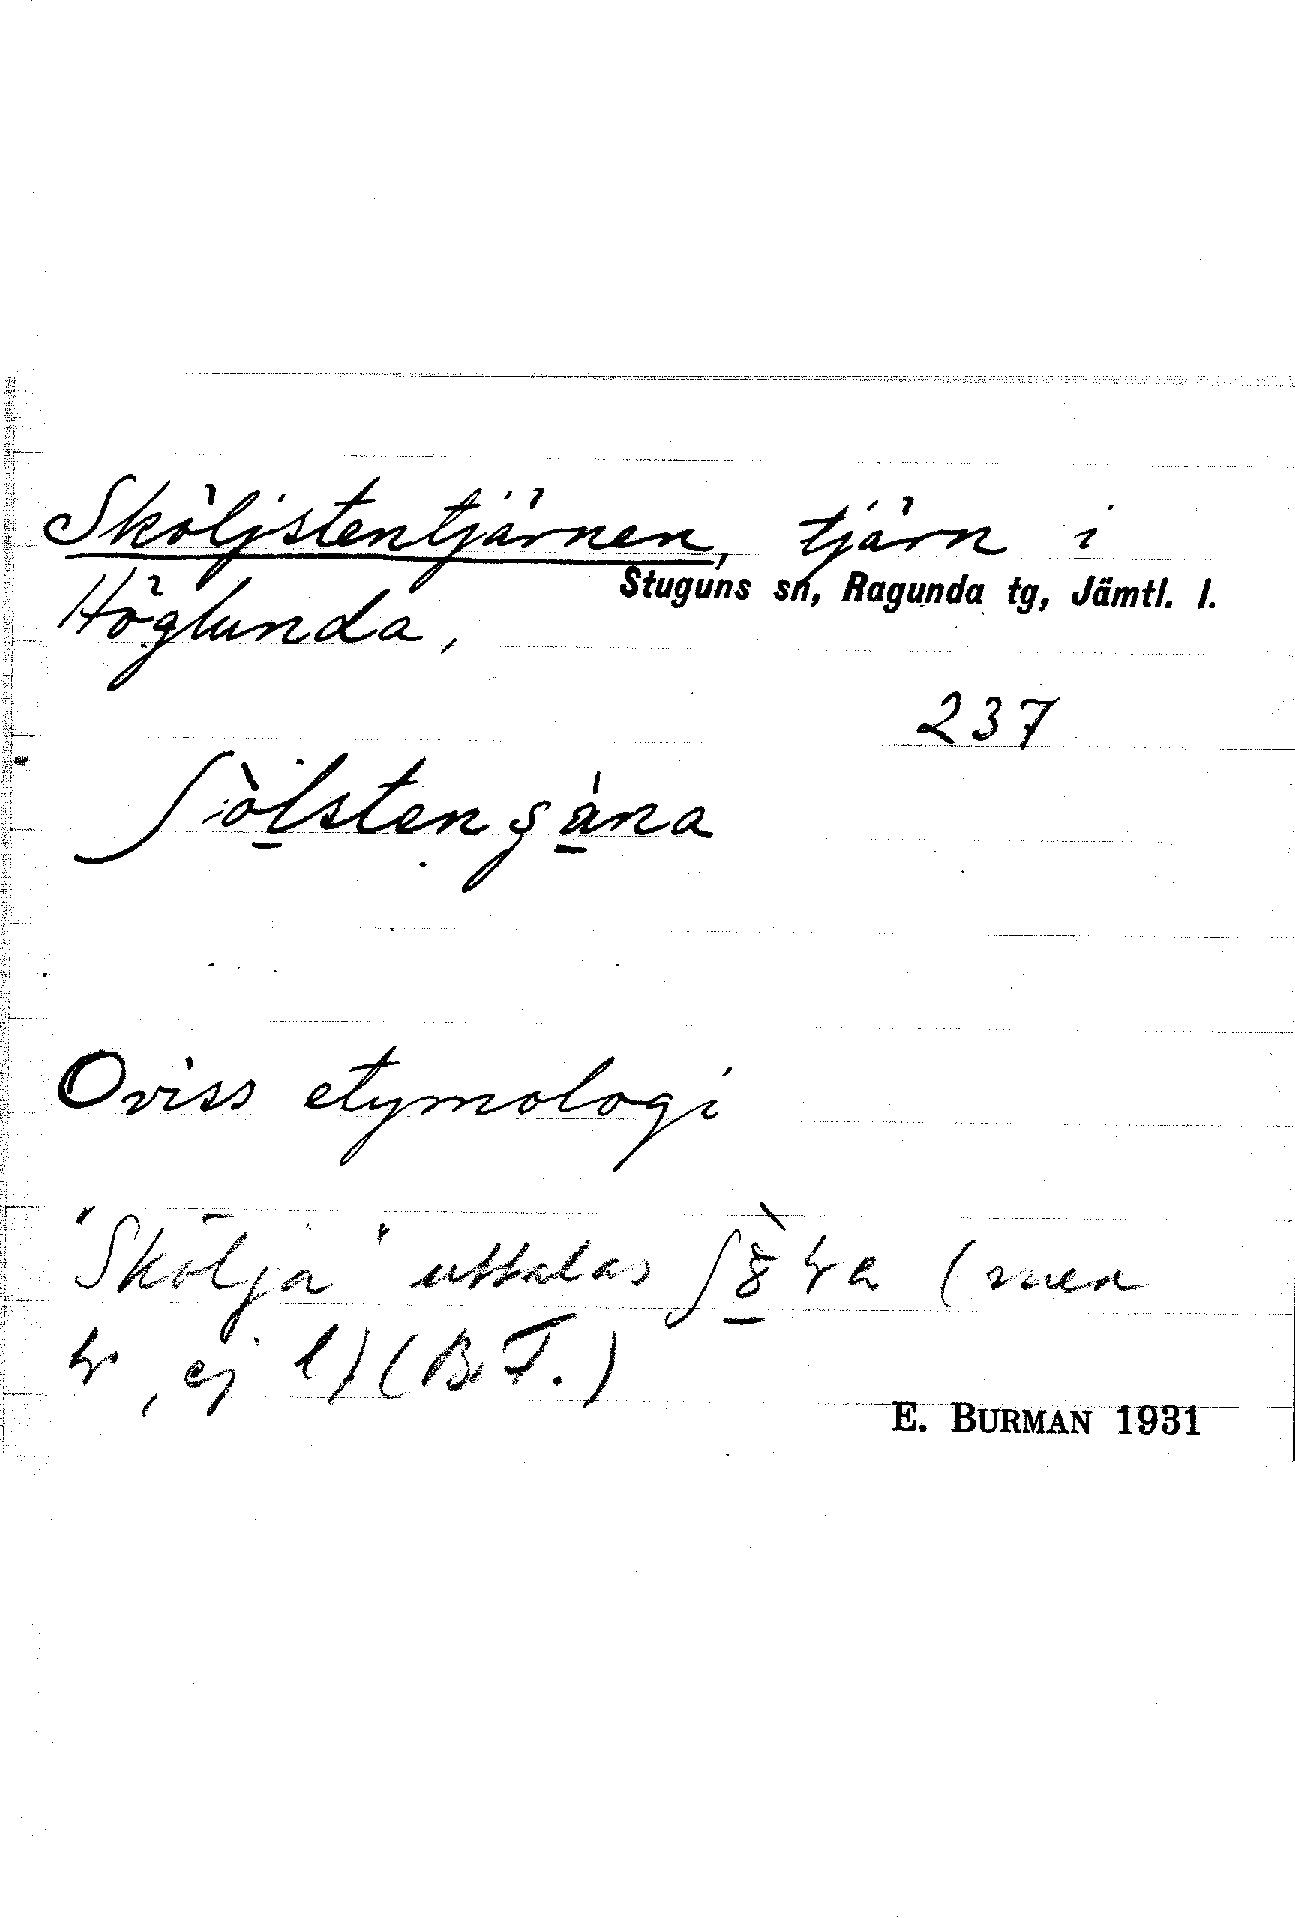 Sköljstentjärnen, tjärn i
Stuguns sn, Ragunda tg, Jämtl. l.
Höglunda,
237
Oviss etymologi
"Skölja" uttalas (men
, ej l) (B.F.)
E. BURMAN 1931